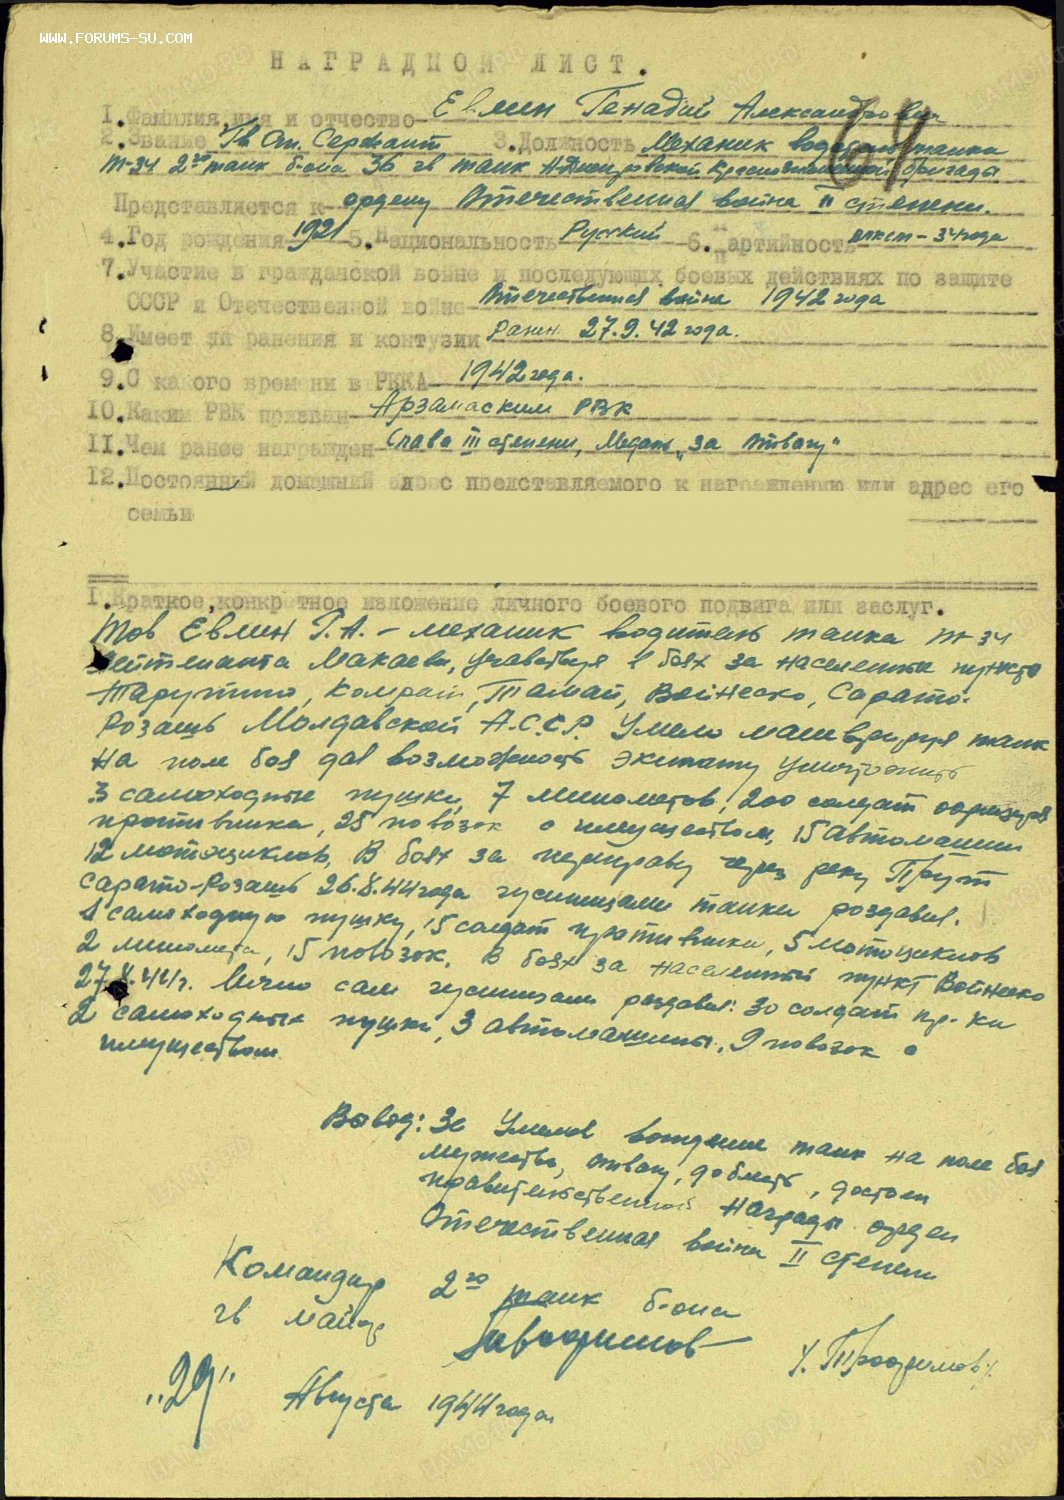 WWW.FORUMS-SU.COM
НАГРАДНОЙ ЛИСТ.
64
1.Фамилия,имя и отчество Евлин Генадий Александрович
2.Звание Гв Ст. Сержант 3.Должность Механик водитель танка
Т-34 2го танк б-она 36 гв танк Краснознаменной бригады
Представляется к ордену Отечественная война II степени.
4.Год рождения 1921 5.Национальность Русский 6.Партийность влксм-34года
7.Участие в гражданской войне и последующих боевых действиях по защите
СССР и Отечественной войне Отечественная война 1942 года
8.Имеет ли ранения и контузии Ранен 27.9.42 года.
9.С какого времени в РККА 1942 года.
10.Каким РВК призван Арзамаским РВК
11.Чем ранее награжден Слава III степени, Медаль „За Отвагу"
12.Постоянный домашний адрес представляемого к награждению или адрес его
семьи
I.Краткое,конкретное изложение личного боевого подвига или заслуг.
Тов Евлин Г.А. – механик водитель танка Т-34
Лейтенанта Макаева, участвуя в боях за населенные пункты
Тарутино, Комрат, Тамай, Войнеско, Сарато-
Розашь Молдавской А.С.С.Р. Умело маневрируя танк
на поле боя дав возможность экипажу уничтожить
3 самоходные пушки, 7 минометов, 200 солдат
противника, 25 повозок с имуществом, 15 автомашин
12 мотоциклов. В боях за переправу через реку Прут
Сарато-Розашь 26.8.44 года гусницами танка роздавил.
1 самоходную пушку, 15 солдат противника, 5 мотоциклов
2 миномета, 15 повозок. В боях за населенный пункт Войнеско
27.8.44г. лично сам гусницами роздавил: 30 солдат пр-ка
2 самоходных пушки, 3 автомашины, 9 повозок с
имуществом.
Вывод: За Умелое вождение танк на поле боя
мужество, отвагу, доблесть, достоен
правительственной Награды орден
Отечественная война II степени
Командир 2го танк б-она
гв майор
/. Трофимов /.
„29" Августа 1944 года